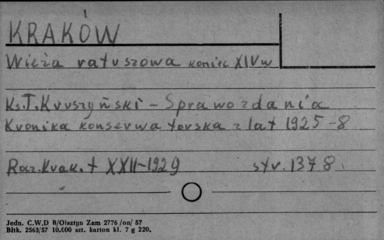 KRAKÓW
Wieża ratuszowa koniec XIV w
Ks. T. Kruszyński - Sprawozdania
Kronika konserwatorska z lat 1925-8
Rocz. Krak. t XXII-1929 str. 137 8.
Jedn. C.W.D 8/Olsztyn Zam 2776 /on/ 57
Błtk. 2563/57 10.000 szt. karton kl. 7 g 220.